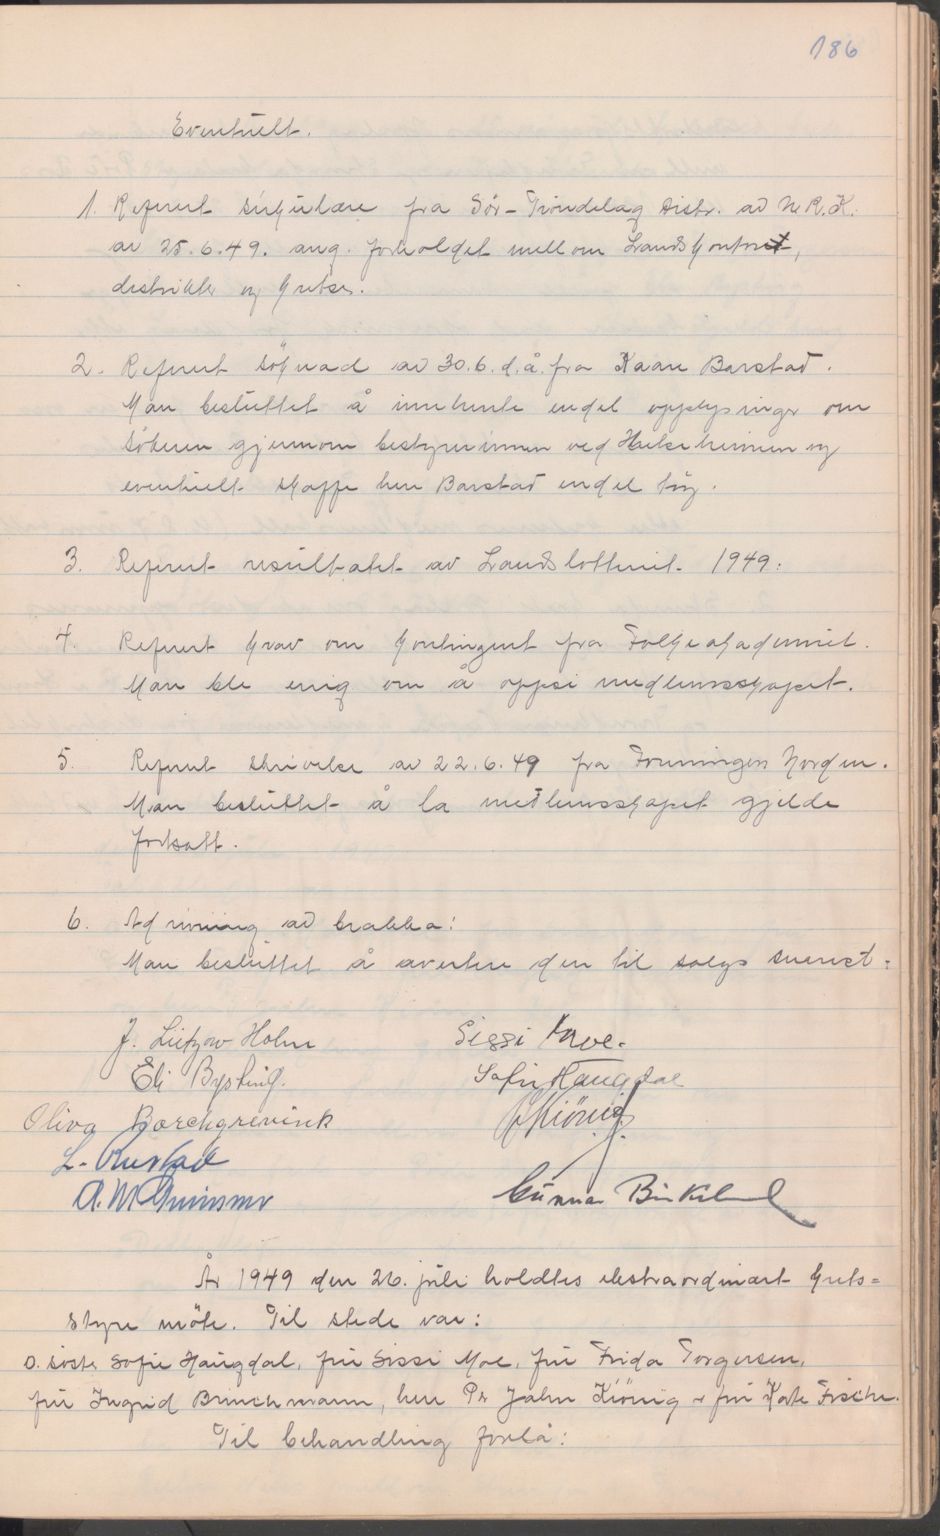 186
Eventuelt.
1. Referert sirkulære fra Sör-Tröndelag distr. av N.R.K.
av 25.6.49. ang. forholdet mellom Landskontoret,
distrikter og kretser.
2. Referert söknad av 30.6. d.å. fra Kaare Barstad.
Man besluttet å innhente endel opplysninger om
sökeren gjennom bestyrerinnen ved Helseheimen og
eventuelt skaffe herr Barstad endel töy.
3. Referert resultatet av Landslotteriet 1949.
4. Referert krav om kontingent fra Folkeakademiet.
Man ble enig om å oppsi medlemsskapet.
5. Referert skrivelse av 22.6.49 fra Foreningen Norden.
Man besluttet å la medlemsskapet gjelde
fortsatt.
6. Ad rivning av brakka:
Man besluttet å avertere den til salgs snarest.
J. Lützow Holm Sissi Moe.
Eli Bysting. Sofie Haugdal
Oliva Borchgrevink J Kiönig.
L. Rustad
A. M. Grimsmo Gunnar Birkeland
År 1949 den 26. juli holdtes ekstraordinært krets=
styre möte. Til stede var:
O. söster Sofie Haugdal, fru Sissi Moe, fru Frida Torgersen,
fru Ingrid Brinchmann, herr Pr. John Kiönig & fru Kate Fischer.
Til behandling forelå: